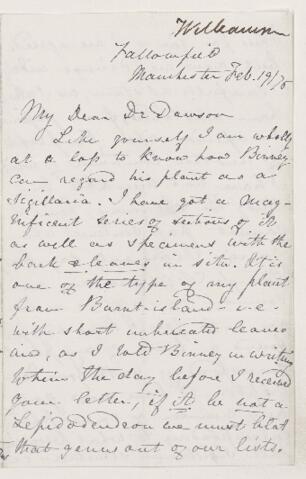 Williamson
Fallowfield
Manchester Feb. 19/76
My Dear Dr Dawson
Like yourself I am wholly
at a loss to know how Binney
can regard his plant as a
Sigillaria. I have got a mag-
nificent series of sections of it
as well as specimens with the
bark & leaves in situ. It is
one of the type of my plant
from Burntisland - i.e.
with short imbricated leaves
and, as I told Binney in writing
to him the day before I received
your letter, if it be not a
Lepidodendron we must blot
that genus out of our lists.